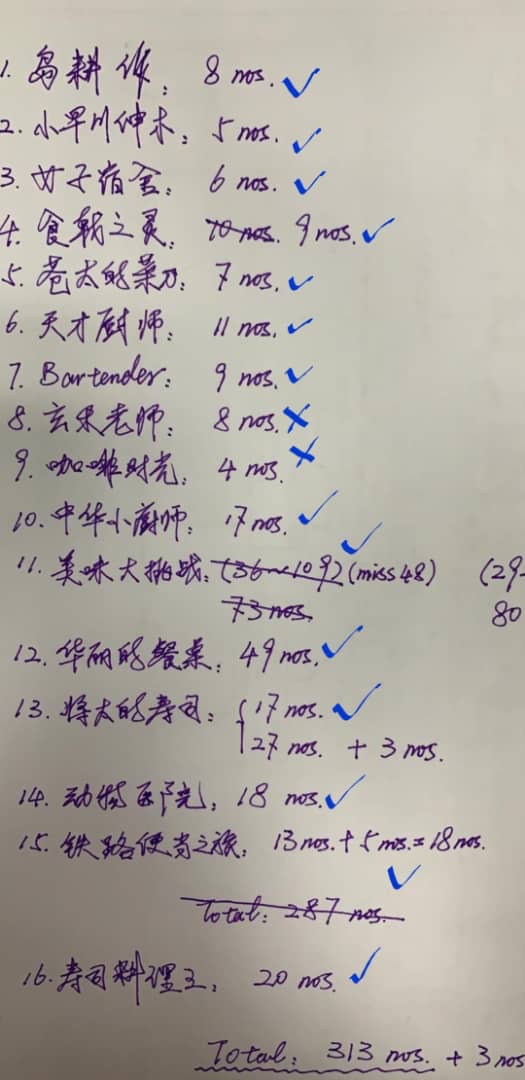 1. 島耕作: 8 nos. ✓
2. 小早川伸木: 5 nos. ✓
3. 女子宿舍: 6 nos. ✓
4. 食戟之灵: 10 nos. 9 nos. ✓
5. 苍太的菜刀: 7 nos. ✓
6. 天才厨师: 11 nos. ✓
7. Bartender: 9 nos. ✓
8. 玄米老师: 8 nos. ✗
9. 咖啡时光: 4 nos. ✗
10. 中华小廚师: 17 nos. ✓
11. 美味大挑战: (36~109) (miss 48) (29- ✓
73 nos. 80
12. 华丽的餐桌: 49 nos. ✓
13. 将太的寿司: { 17 nos. ✓
27 nos. + 3 nos.
14. 动物医院: 18 nos. ✓
15. 铁路便当之旅: 13 nos. + 5 nos. = 18 nos.
✓
Total: 287 nos.
16. 寿司料理王: 20 nos. ✓
Total: 313 nos. + 3 nos